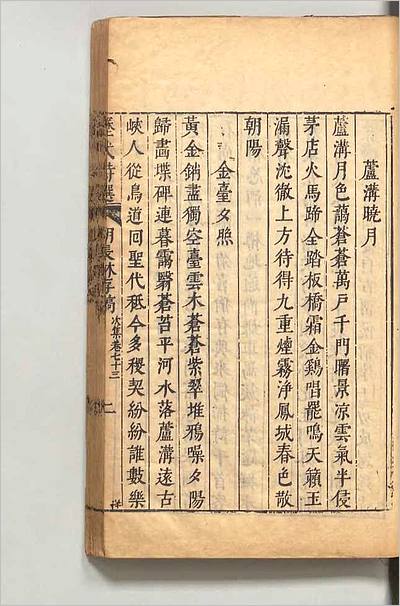 蘆溝曉月
蘆溝月色藹蒼蒼萬戶千門曙景涼雲氣半侵
茅店火馬蹄全踏板橋霜金鷄唱罷鳴天籟玉
漏聲沈徹上方待得九重煙霧淨鳳城春色散
朝陽
金臺夕照
黃金銷盡獨空臺雲木蒼蒼紫翠堆鴉噪夕陽
歸畵堞碑連暮靄翳蒼苔平河水落蘆溝遠古
峽人從鳥道回聖代秪今多稷契紛紛誰數樂
歷代詩選 明 長林存稿 次集卷七十三